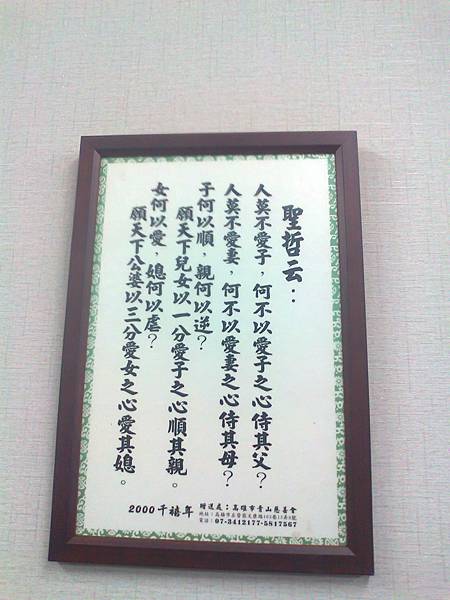 聖哲云：
人莫不愛子，何不以愛子之心侍其父？
人莫不愛妻，何不以愛妻之心侍其母？
子何以順，親何以逆？
願天下兒女以一分愛子之心順其親。
女何以愛，媳何以虐？
願天下公婆以三分愛女之心愛其媳。
2000千禧年
贈送處：高雄市青山慈善會
電話：07-3412177-5817567